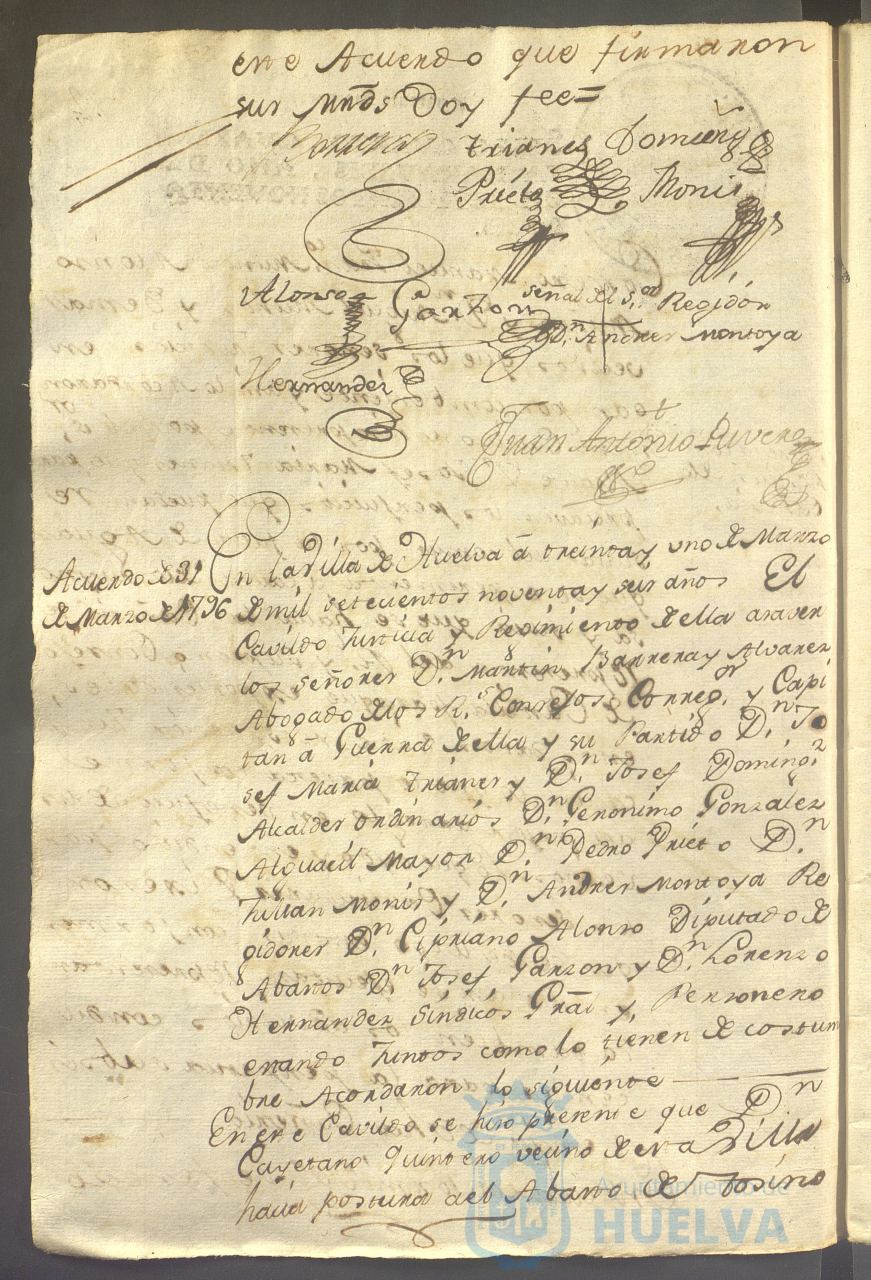 este Acuerdo que firmaron
sus Mrds Doy fee=
Barrera Trianes Doming.
Prieto Monis
Alonso Garzon señal del S.or Regidor
D.n Andres Montoya
Hernandes
Juan Antonio Rivero
Acuerdo de 31
de Marzo de 1796
En la Villa de Huelva â treinta y uno de Marzo
de mil setecientos noventa y seis años El
Cavildo Justicia y Regimiento de ella asaver
los señores D.n Martin Barrera y Alvares
Abogado de los R.s Consejos Correg.or y Capi
tan â Guerra de ella y su Partido D.n Jo
sef Maria Trianes y D.n Josef Doming.
Alcaldes ordinarios D.n Geronimo Gonzalez
Alguacil Mayor D.n Pedro Prieto D.n
Julian Monis y D.n Andres Montoya Re
gidores D.n Cipriano Alonso Diputado de
Abastos D.n Josef Garzon y D.n Lorenzo
Hernandez Sindicos Grâl y Personero
estando Juntos como lo tienen de costum
bre Acordaron lo siguiente
En este Cavildo se hiso presente que D.n
Cayetano Quintero vecino de esta Villa
hacia postura del Abasto de Tosino
Ayuntamiento de
HUELVA